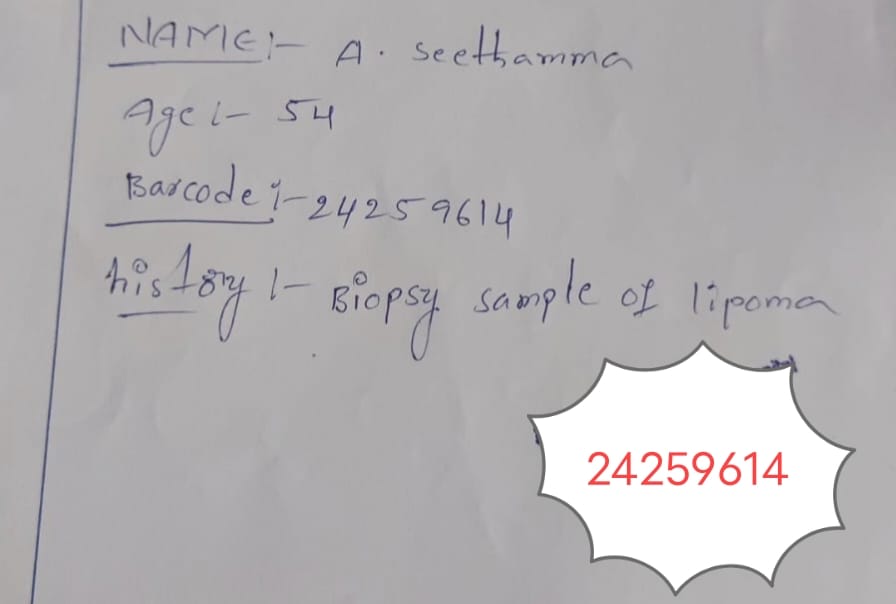 NAME:- A. Seethamma
Age:- 54
Barcode:- 24259614
history:- Biopsy sample of lipoma
24259614